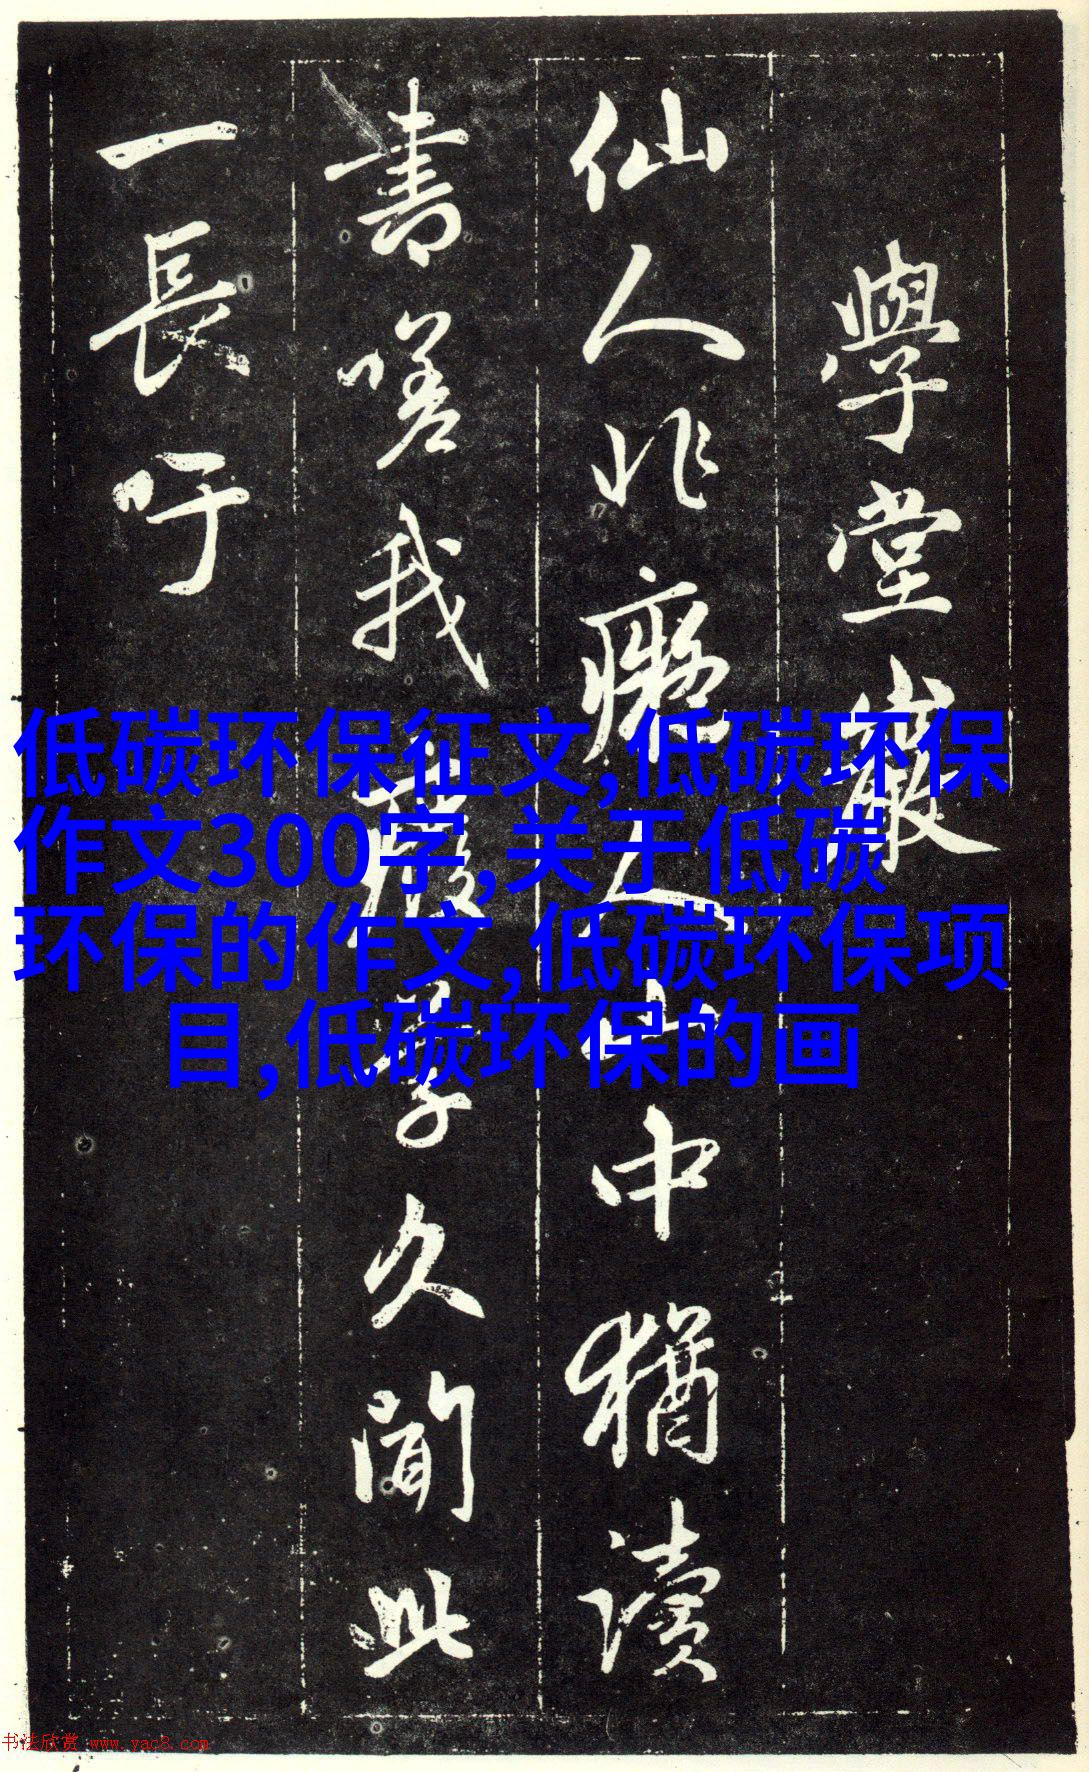 學堂巖
仙人非癡人山中猶讀
書嗟我廢學久聞此
一長吁
低碳环保征文,低碳环保
作文300字,关于低碳
环保的作文,低碳环保项
目,低碳环保的画
书法欣赏 www.yac8.com